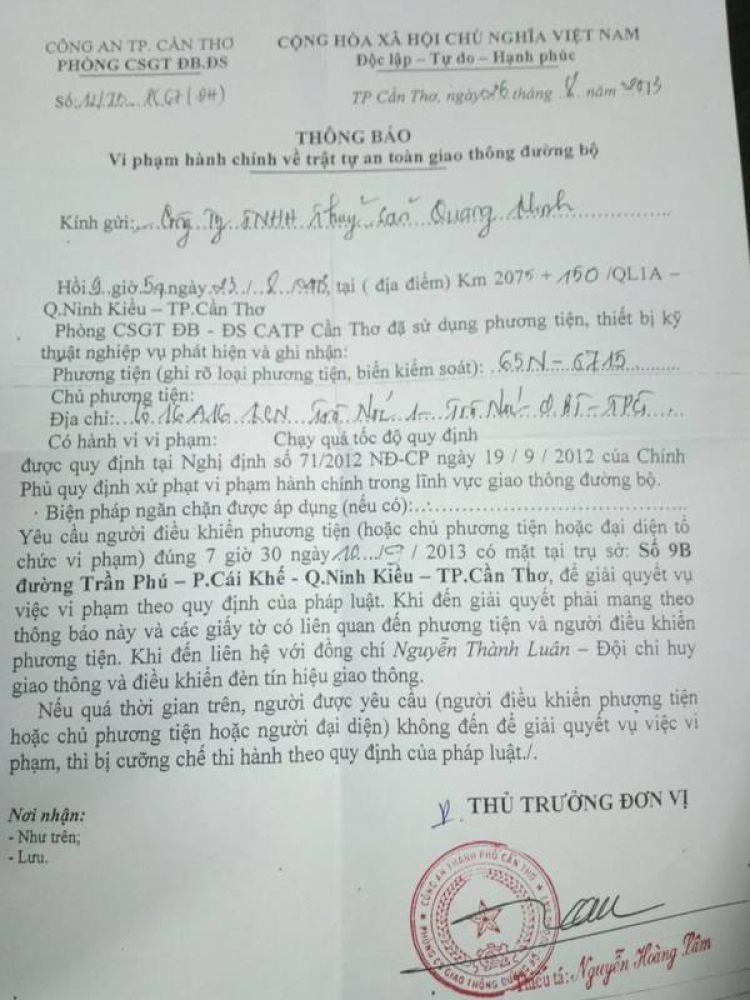 CÔNG AN TP. CẦN THƠ
PHÒNG CSGT ĐB.ĐS
CỘNG HÒA XÃ HỘI CHỦ NGHĨA VIỆT NAM
Độc lập – Tự do – Hạnh phúc
Số:
TP Cần Thơ, ngày 26 tháng 8 năm 2013
THÔNG BÁO
Vi phạm hành chính về trật tự an toàn giao thông đường bộ
Kính gửi: Công Ty TNHH Thuỷ Sản Quang Minh
Hồi 9 giờ 59 ngày 23 / 8 / 2013, tại ( địa điểm) Km 2075 + 150 /QL1A –
Q.Ninh Kiều – TP.Cần Thơ
Phòng CSGT ĐB - ĐS CATP Cần Thơ đã sử dụng phương tiện, thiết bị kỹ
thuật nghiệp vụ phát hiện và ghi nhận:
Phương tiện (ghi rõ loại phương tiện, biển kiểm soát): 65N – 6715
Chủ phương tiện:
Địa chỉ: Lô 16A16 KCN Trà Nóc 1 – Trà Nóc – Q.BT – TPCT
Có hành vi vi phạm: Chạy quá tốc độ quy định
được quy định tại Nghị định số 71/2012 NĐ-CP ngày 19 / 9 / 2012 của Chính
Phủ quy định xử phạt vi phạm hành chính trong lĩnh vực giao thông đường bộ.
Biện pháp ngăn chặn được áp dụng (nếu có):
Yêu cầu người điều khiển phương tiện (hoặc chủ phương tiện hoặc đại diện tổ
chức vi phạm) đúng 7 giờ 30 ngày 10 / 9 / 2013 có mặt tại trụ sở: Số 9B
đường Trần Phú – P.Cái Khế - Q.Ninh Kiều – TP.Cần Thơ, để giải quyết vụ
việc vi phạm theo quy định của pháp luật. Khi đến giải quyết phải mang theo
thông báo này và các giấy tờ có liên quan đến phương tiện và người điều khiển
phương tiện. Khi đến liên hệ với đồng chí Nguyễn Thành Luân – Đội chỉ huy
giao thông và điều khiển đèn tín hiệu giao thông.
Nếu quá thời gian trên, người được yêu cầu (người điều khiển phương tiện
hoặc chủ phương tiện hoặc người đại diện) không đến để giải quyết vụ việc vi
phạm, thì bị cưỡng chế thi hành theo quy định của pháp luật./.
Nơi nhận:
- Như trên;
- Lưu.
THỦ TRƯỞNG ĐƠN VỊ
CÔNG AN THÀNH PHỐ CẦN THƠ
Thiếu tá: Nguyễn Hoàng Tâm